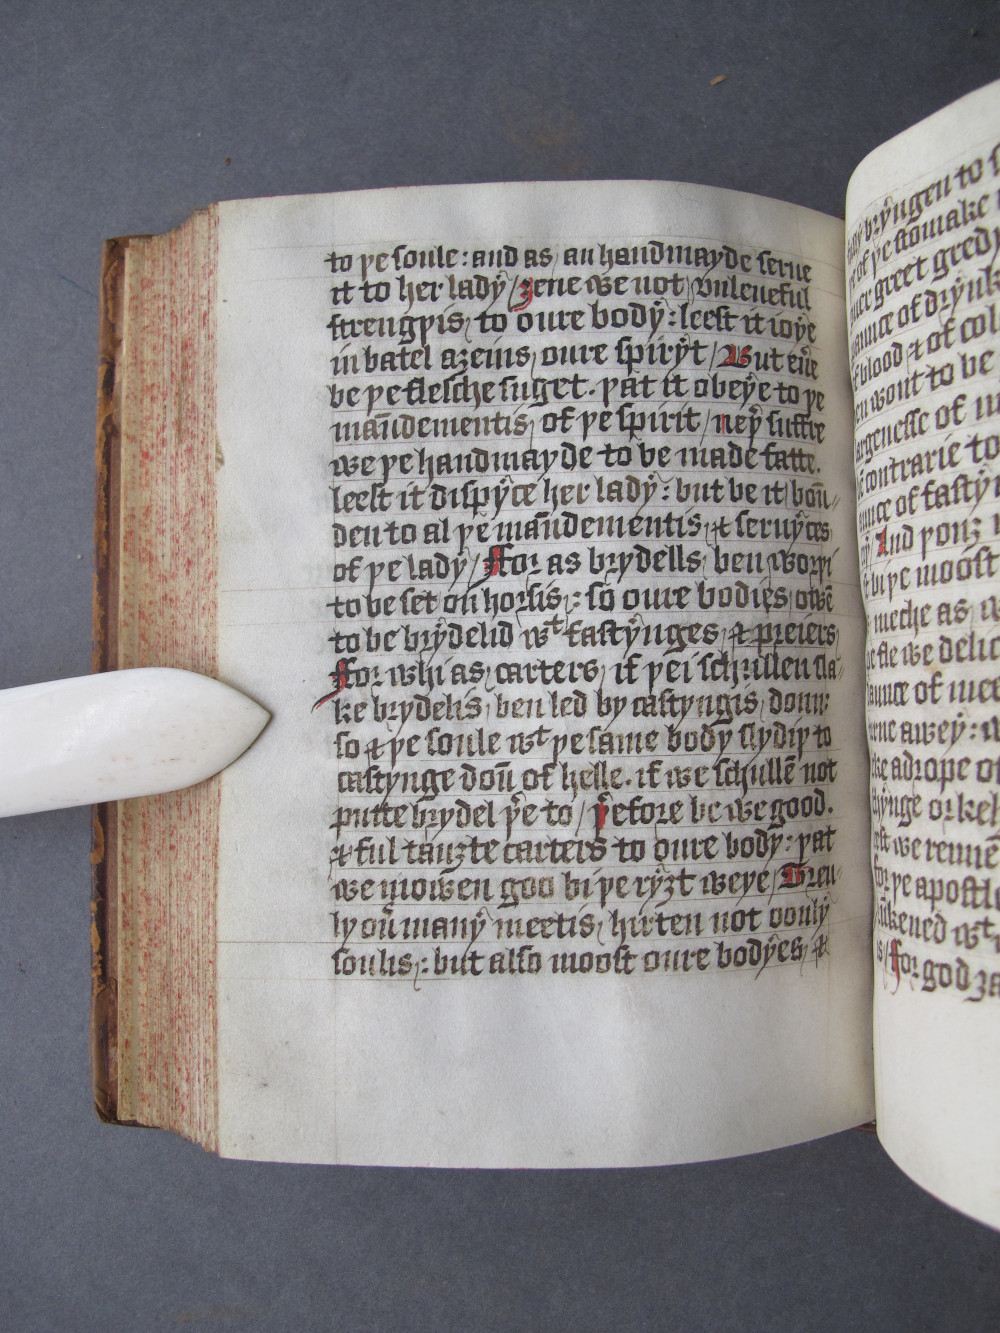 to þe soule : and as, an handmayde serue
it to her ladẏ / Ȝeue we not, vnleueful
strengþis, to oure bodẏ : leest it ioẏe
in batel aȝeins, oure spirẏt / But eu̅e
be þe flesche suget. þat it obeẏe to þe
mau̅dementis, of þe spirit / neþ̉ suffre
we þe handmayde to be made fatte.
leest it dispẏce her ladẏ : but be it, bou̅-
den to al þe̅ mau̅dementis, ⁊ seruẏces
of þe ladẏ / ffor as brydells, ben worþi
to be set on horsis, : so oure bodies, owe̅
to be brẏdelid wᵗ fastẏnges, ⁊ preiers,
ffor whi as, carters, if þei schullen sla-
ke brydelis, ben led by castyngis, doun:
so ⁊ þe soule wᵗ þe same body slydiþ to
castynge dou̅ of helle. if we schulle̅ not
putte brydel þ̉e to / þ̉efore be we good.
⁊ ful tauȝte carters to oure body : þat
we mowen goo bi þe rẏȝt weye / Treu-
ly oủ manẏ meetis, hirten not oonlẏ
soulis, : but also moost oure bodẏes, ⁊
brẏngen to
of þe stomake
greet gred
aunce of drẏnk
blood ⁊ of col
wont to be
argenesse of
contrarie to
of fastẏ
And þouȝ
bi þe moost
meche as
we delic
aunce of me
awey :
adrope of
or
we
for þe apostl
wᵗ
for god